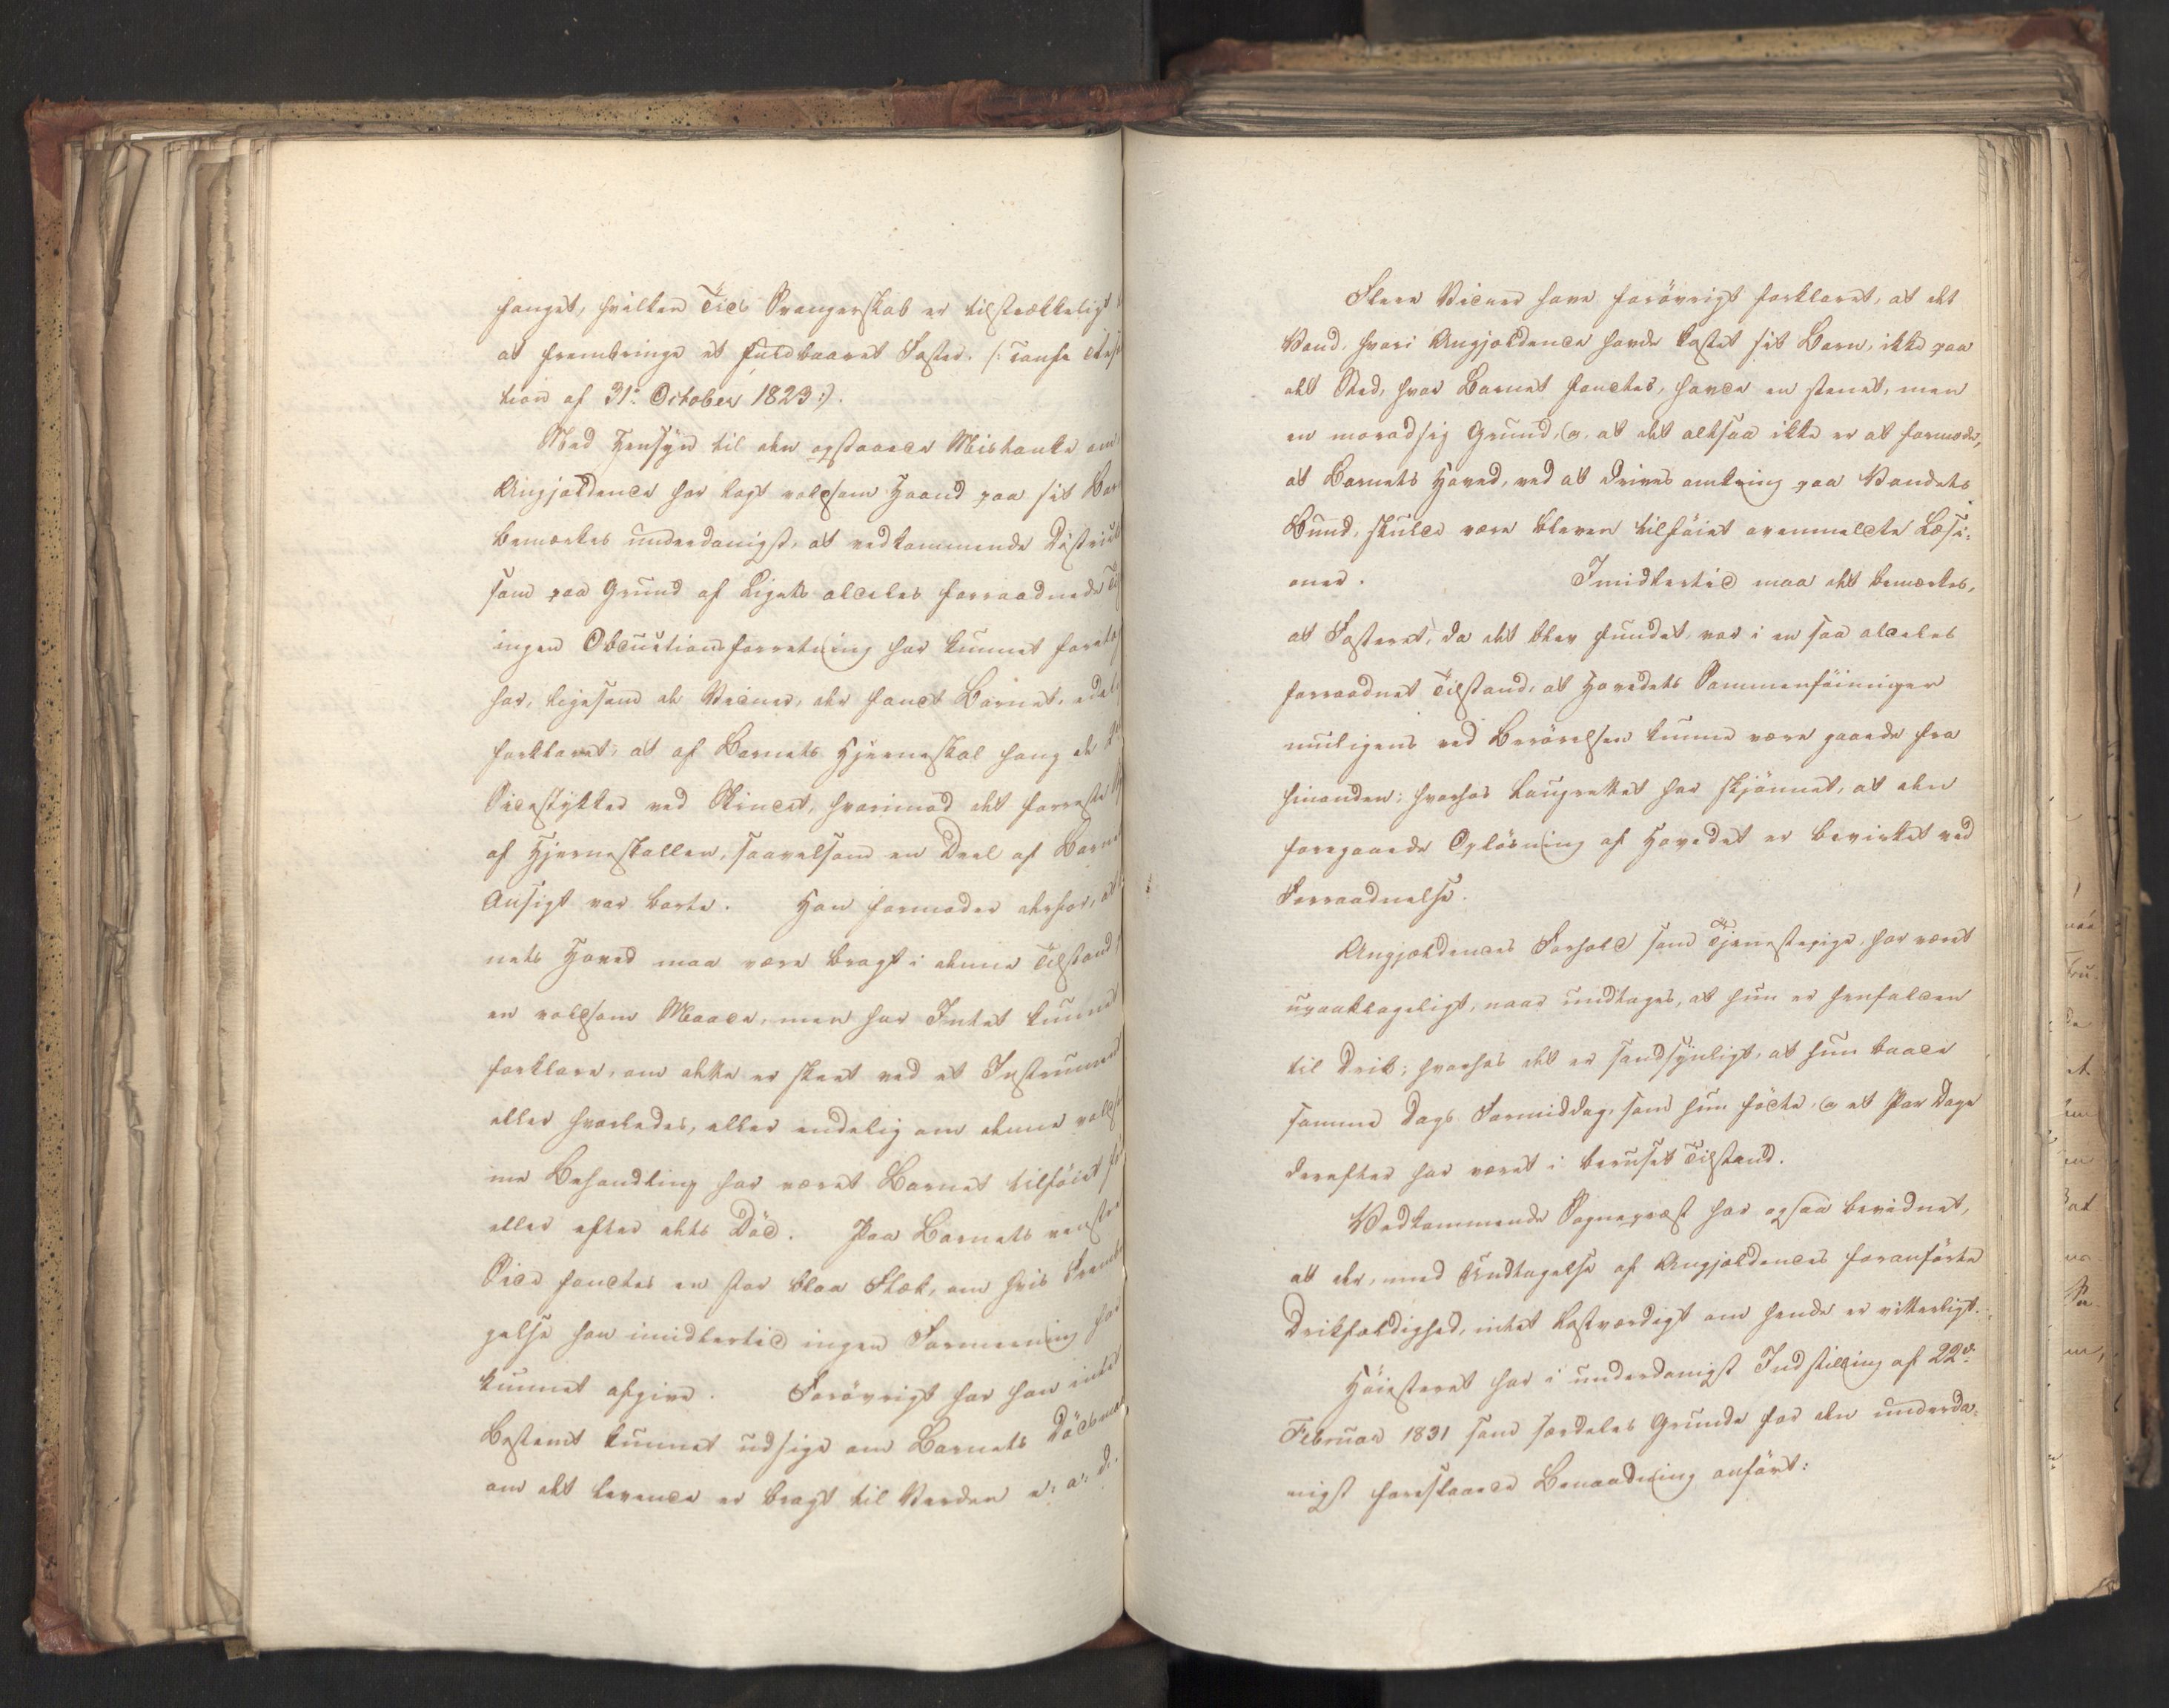 fanget, hvilken Tids Svangerskab er tilstrækkeligt
at frembringe et fuldbaaret Foster. (: confr
tion af 31. October 1823:).
Med Hensyn til den opstaaede Mistanke om
Angjældende har lagt voldsom Haand paa sit Bar
bemærkes underdanigst, at vedkommende District
som paa Grund af Ligets aldeles forraadnede
ingen Obductionsforretning har kunnet foreta
har, ligesom de Vidner, der fandt Barnet,
forklaret, at af Barnets Hjerneskal hang de
Sidestykker ved Skindet, hvorimod det forreste
af Hjerneskallen, saavelsom en Deel af Barne
Ansigt var borte. Han formoder derfor, at
nets Hoved maa være bragt i denne Tilstand
en voldsom Maade, men har Intet kunnet
forklare, om dette er skeet ved et Instrument
eller hvorledes, eller endelig om denne volds
me Behandling har været Barnet tilföiet för
eller efter dets Död. Paa Barnets venstre
Side fandtes en stor blaa Flæk, om hvis Frembr
gelse han imidlertid ingen Formening har
kunnet afgive. Forövrigt har han intet
Bestemt kunnet udsige om Barnets Dödsmaa
om det levende er bragt til Verden o: a: d:
Flere Vidner have forövrigt forklaret, at det
Vand, hvori Angjældende havde kastet sit Barn, ikke paa
det Sted, hvor Barnet fandtes, havde en stenet, men
en moradsig Grund, og at det altsaa ikke er at formode,
at Barnets Hoved, ved at drives omkring paa Vandets
Bund, skulde være bleven tilföiet ovenmeldte Læsi-
oner. Imidlertid maa det bemærkes,
at Fosteret, da det blev fundet, var i en saa aldeles
forraadnet Tilstand, at Hovedets Sammenföininger
muligens ved Berörelsen kunne være gaaede fra
hinanden; hvorhos Laugrettet har skjönnet, at den
foregaaede Oplösning af Hovedet er bevirket ved
Forraadnelse.
Angjældendes Forhold som Tjenestepige, har været
upaaklageligt, naar undtages, at hun er henfalden
til Drik; hvorhos det er sandsynligt, at hun baade
samme Dags Formiddag, som hun födte, og et Par Dage
derefter har været i beruset Tilstand.
Vedkommende Sognepræst har ogsaa bevidnet,
at der, med Undtagelse af Angjældendes foranförte
Drikfældighed, intet lastværdigt om hende er vitterligt.
Höiesteret har i underdanigst Indstilling af 22de
Februar 1831 som særdeles Grunde for den underda-
nigst foreslaaede Benaadning anfört: